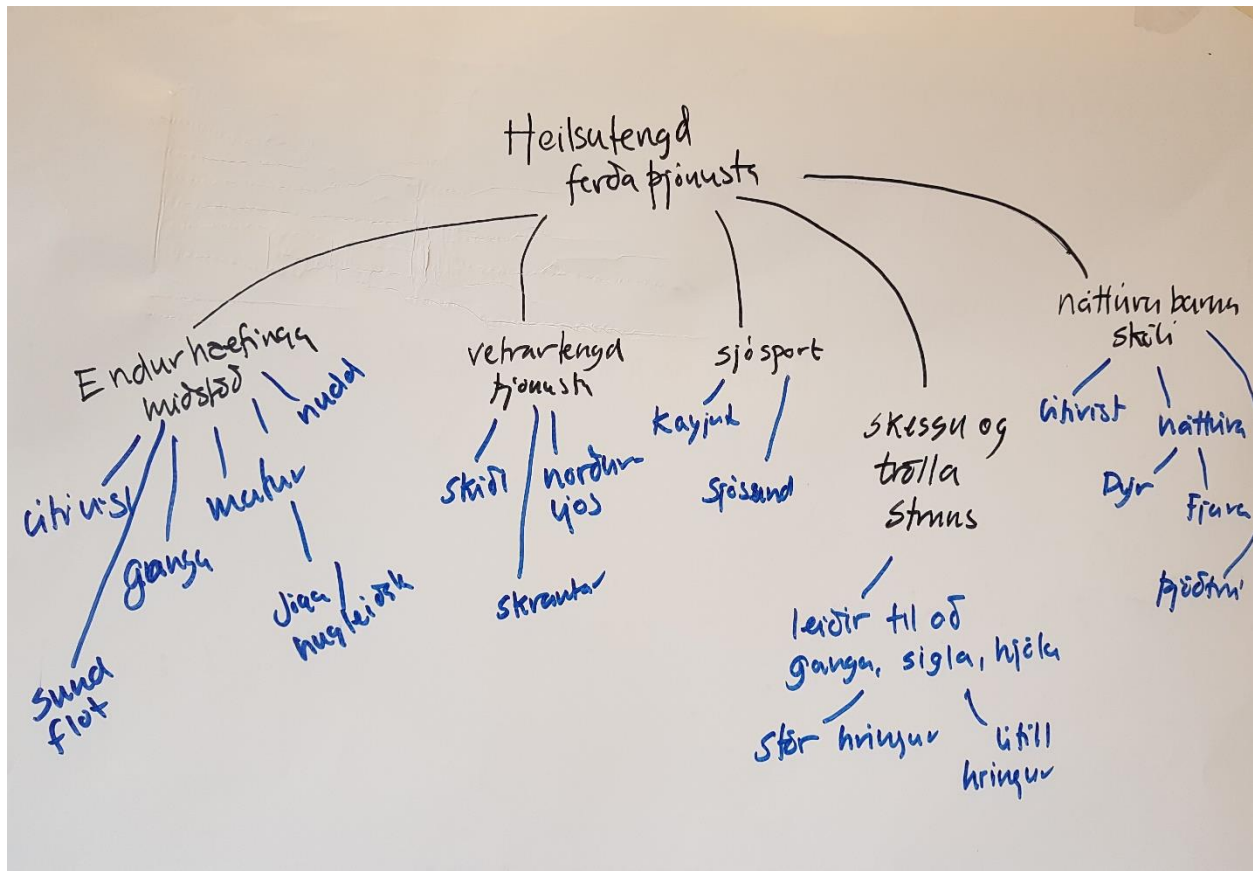 Heilsutengd
ferða þjónusta
Endurhæfinga
miðstöð
útivist
sund
flot
ganga
matur
nudd
Jóga/
hugleiðsk
vetrartengd
þjónusta
skíði
skrautar
norður
ljós
sjósport
Kayjak
Sjósund
skessu og
trölla
struns
leiðir til að
ganga, sigla, hjóla
stór hringur
lítill
hringur
náttúru barna
skóli
útivist
náttúra
Dýr
Fjara
þjóðtrú